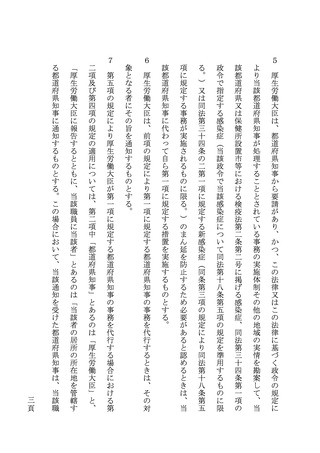 ５　厚生労働大臣は、都道府県知事から要請があり、かつ、この法律又はこの法律に基づく政令の規定に
より当該都道府県知事が処理することとされている事務の実施体制その他の地域の実情を勘案して、当
該都道府県又は保健所設置市等における検疫法第二条第二号に掲げる感染症、同法第三十四条第一項の
政令で指定する感染症（当該政令で当該感染症について同法第十八条第五項の規定を準用するものに限
る。）又は同法第三十四条の二第一項に規定する新感染症（同条第三項の規定により同法第十八条第五
項に規定する事務が実施されるものに限る。）のまん延を防止するため必要があると認めるときは、当
該都道府県知事に代わって自ら第一項に規定する措置を実施するものとする。
６　厚生労働大臣は、前項の規定により第一項に規定する都道府県知事の事務を代行するときは、その対
象となる者にその旨を通知するものとする。
７　第五項の規定により厚生労働大臣が第一項に規定する都道府県知事の事務を代行する場合における第
二項及び第四項の規定の適用については、第二項中「都道府県知事」とあるのは「厚生労働大臣」と、
「厚生労働大臣に報告するとともに、当該職員に当該者」とあるのは「当該者の居所の所在地を管轄す
る都道府県知事に通知するものとする。この場合において、当該通知を受けた都道府県知事は、当該職
三頁